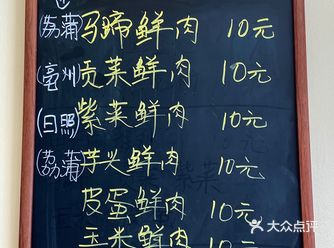 (荔蒲)马蹄鲜肉 10元
(亳州)贡菜鲜肉 10元
(日照)紫菜鲜肉 10元
(荔蒲)芋头鲜肉 10元
皮蛋鲜肉 10元
玉米鲜肉 10元
大众点评